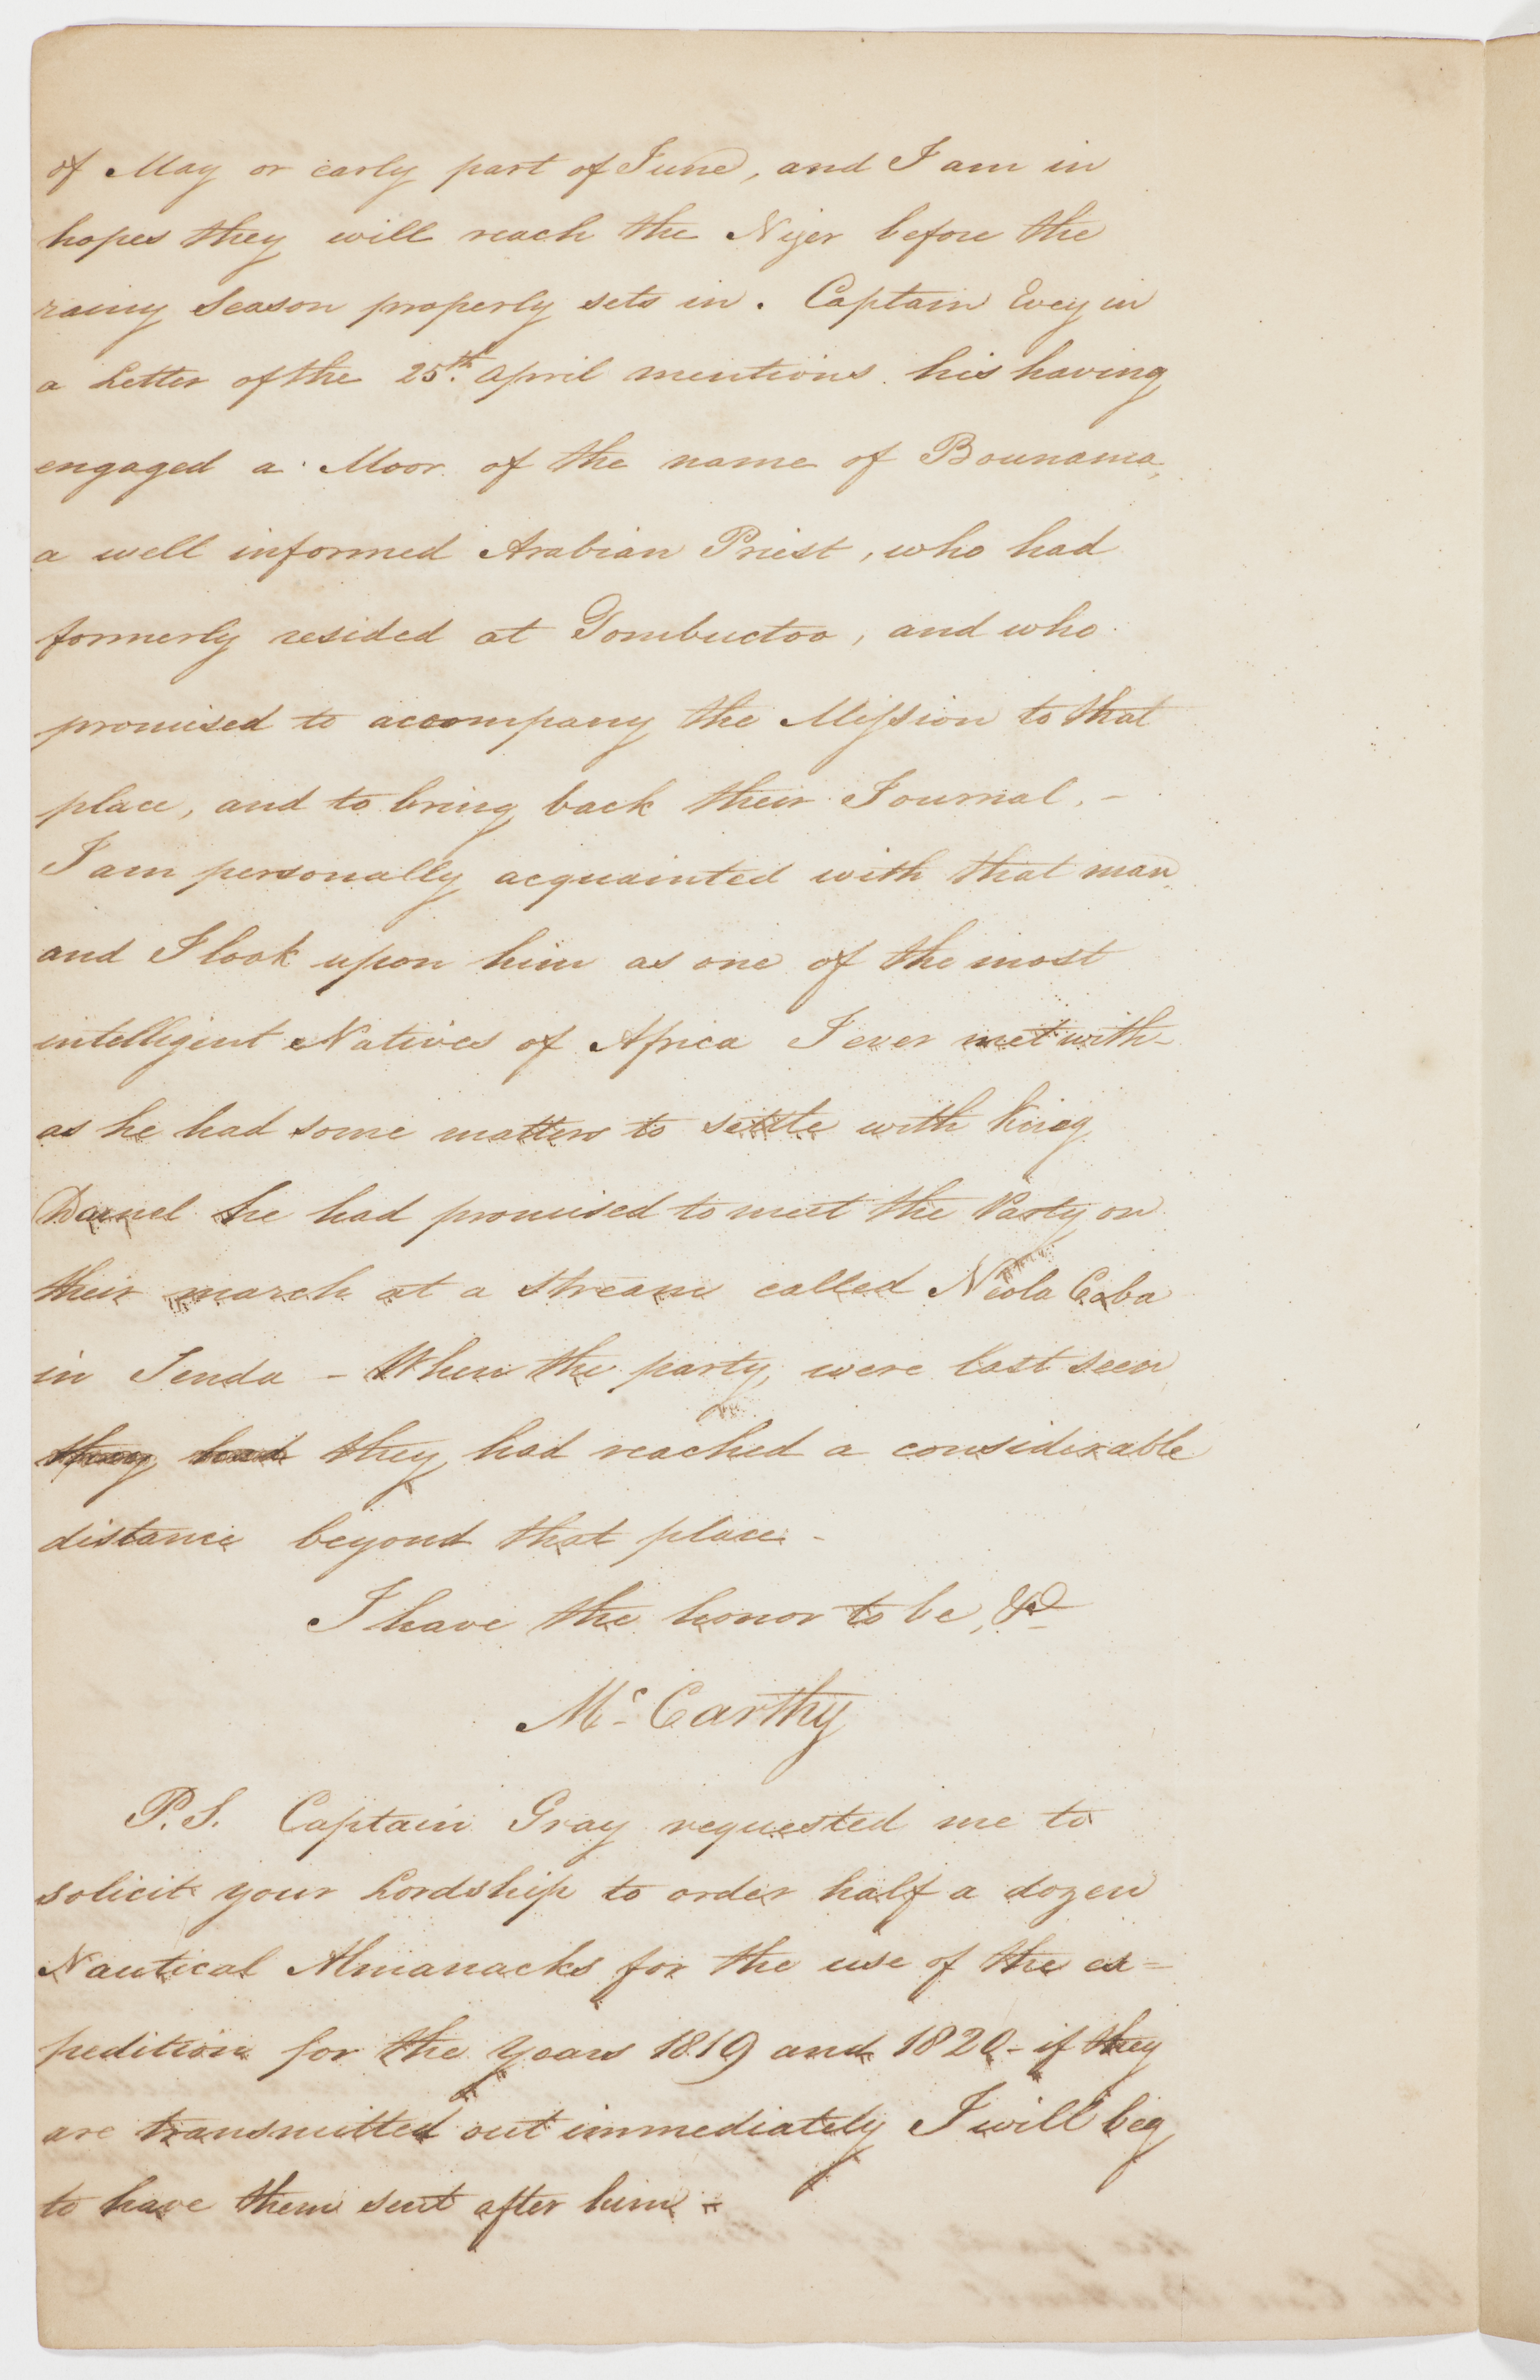 of May or early part of June, and I am in
hopes they will reach the Niger before the
rainy Season properly sets in. Captain Evey in
a Letter of the 25th. April mentions his having
engaged a Moor of the name of Bounama,
a well informed Arabian Priest, who had
formerly resided at Tombuctoo, and who
promised to accompany the Mission to that
place, and to bring back their Journal. -
I am personally acquainted with that man
and I look upon him as one of the most
intelligent Natives of Africa I ever met with -
as he had some matters to settle with King
Damel he had promised to meet the Party on
their march at a stream called Niola Coba
in Tenda - When the party were last seen
they had they had reached a considerable
distance beyond that place -
I have the honor to be, &c
Mc. Carthy
P.S. Captain Gray requested me to
solicit your Lordship to order half a dozen
Nautical Almanacks for the use of the ex=
pedition for the Years 1819 and 1820 - if they
are transmitted out immediately I will beg
to have them sent after him -